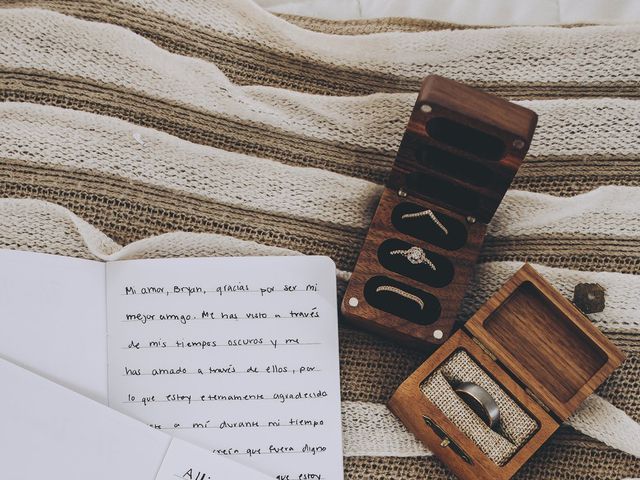 Mi amor, Bryan, gracias por ser mi
mejor amigo. Me has visto a través
de mis tiempos oscuros y me
has amado a través de ellos, por
lo que estoy eternamente agradecida
a mí durante mi tiempo
creín que fuera digno
que estoy